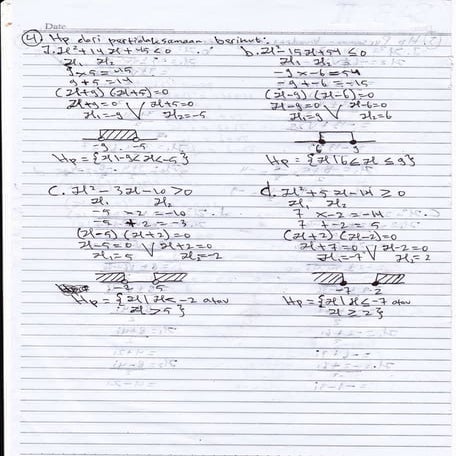 Date
④ Hp dari pertidaksamaan berikut:
a. x²+14x+45<0
x₁ x₂
9 x 5 = 45
9 + 5 = 14
(x+9) (x+5)=0
x+9=0 V x+5=0
x₁=-9 x₂=-5
-9 -5
Hp = {x|-9<x<-5}
b. x²-15x+54≤0
x₁ x₂
-9 x -6 = 54
-9 + -6 = -15
(x-9) (x-6)=0
x-9=0 V x-6=0
x₁=9 x₂=6
6 9
Hp = {x|6≤x≤9}
c. x²-3x-10>0
x₁ x₂
-5 2 = -10
-5 + 2 = -3
(x-5) (x+2)=0
x-5=0 V x+2=0
x₁=5 x₂=-2
5
Hp = {x|x<-2 atau
x>5}
d. x²+5x-14≥0
x₁ x₂
7 x -2 = -14
7 + -2 = 5
(x+7) (x-2)=0
x+7=0 V x-2=0
x₁=-7 x₂=2
-7 2
Hp = {x|x≤-7 atau
x≥2}